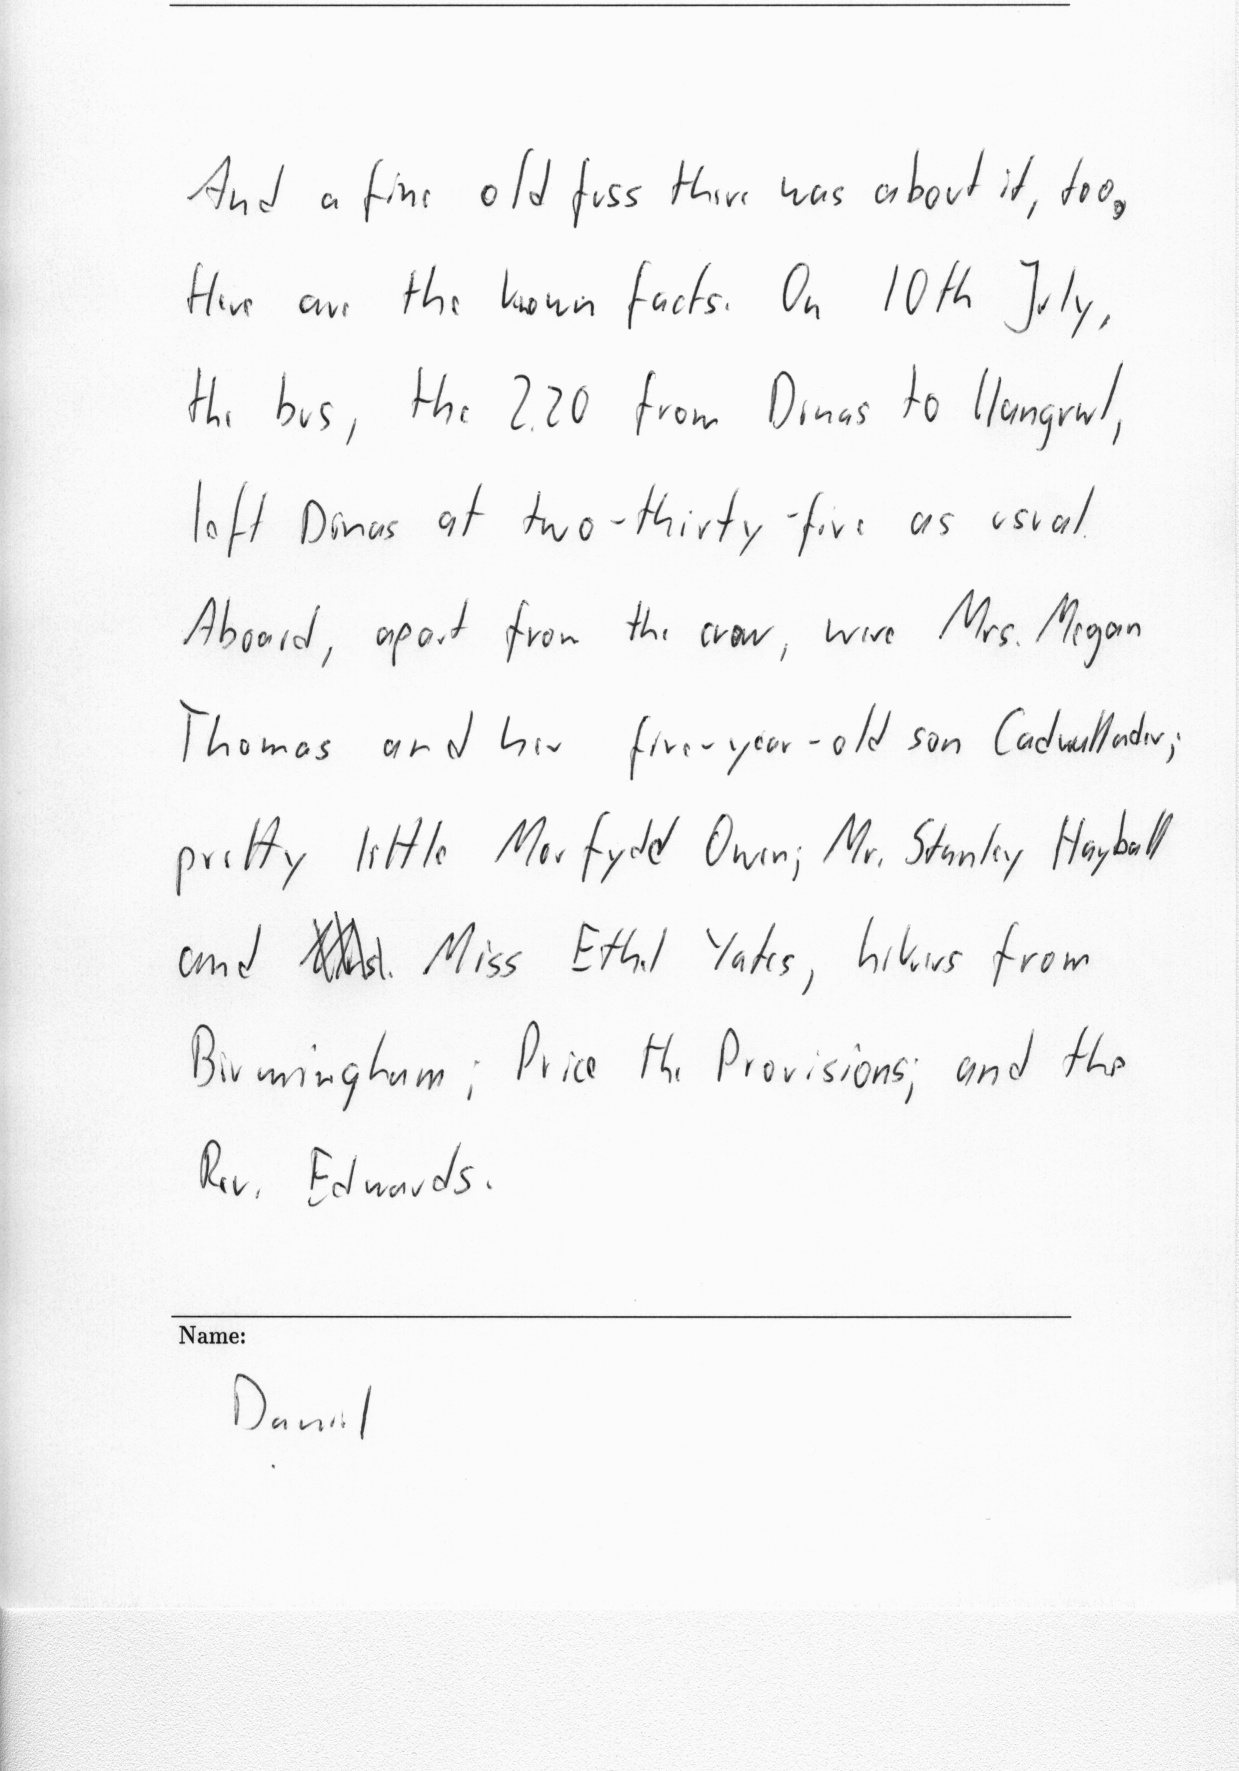 And a fine old fuss there was about it, too,
Here are the known facts. On 10th July,
the bus, the 2.20 from Dinas to Llangrwl,
left Dinas at two-thirty-five as usual.
Aboard, apart from the crew, were Mrs. Megan
Thomas and her five-year-old son Cadwallader;
pretty little Morfydd Owen; Mr. Stanley Hayball
and Miss Ethel Yates, hikers from
Birmingham; Price the Provisions; and the
Rev. Edwards.
Name:
Daniel